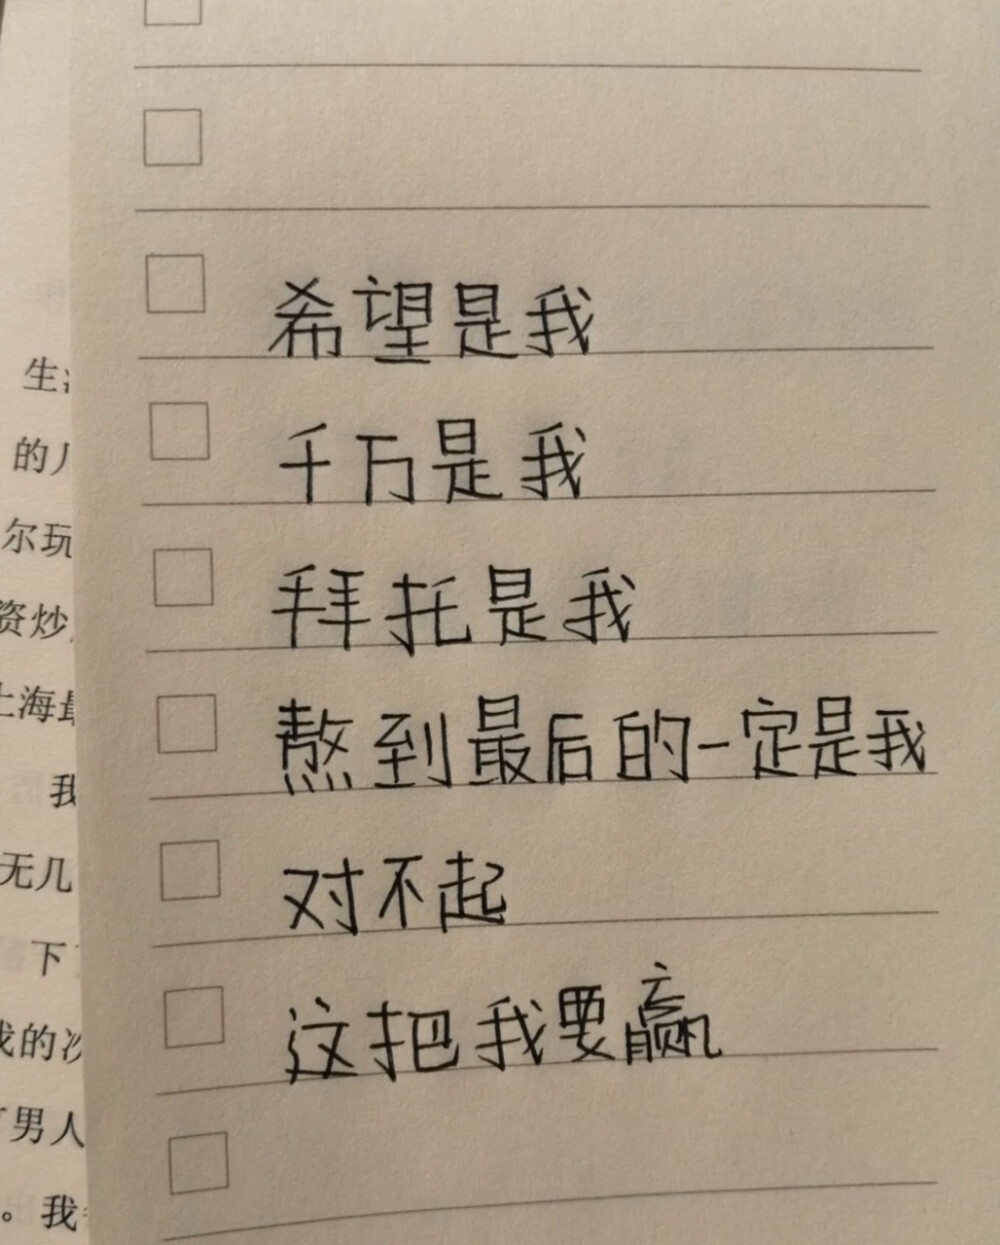 希望是我
千万是我
拜托是我
熬到最后的一定是我
对不起
这把我要赢
生
的
尔玩
资炒
上海最
我
无几
下
我的次
男人
。我